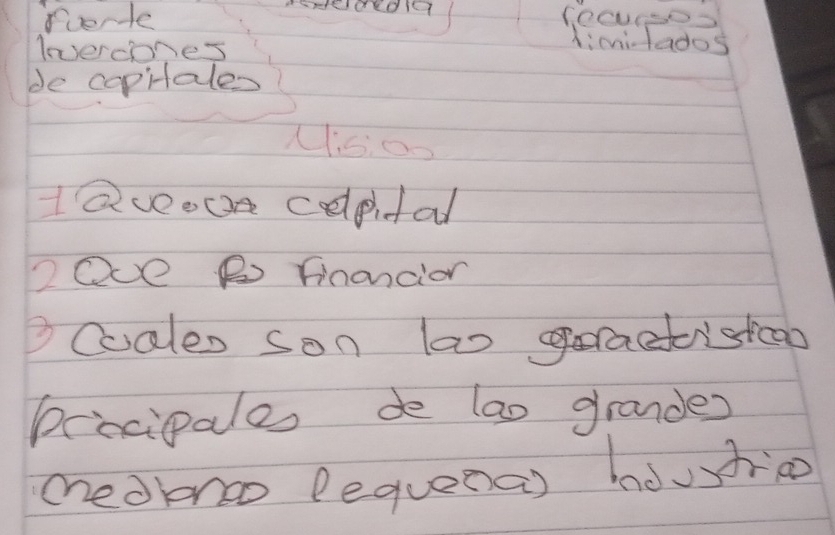 fuente
Inverciones
de capitales
recursos
limitados
Mision
1 Que es capital
2 Que es financiar
3 Cuales son las
principales de las grandes
medianas Pequenas Industrias